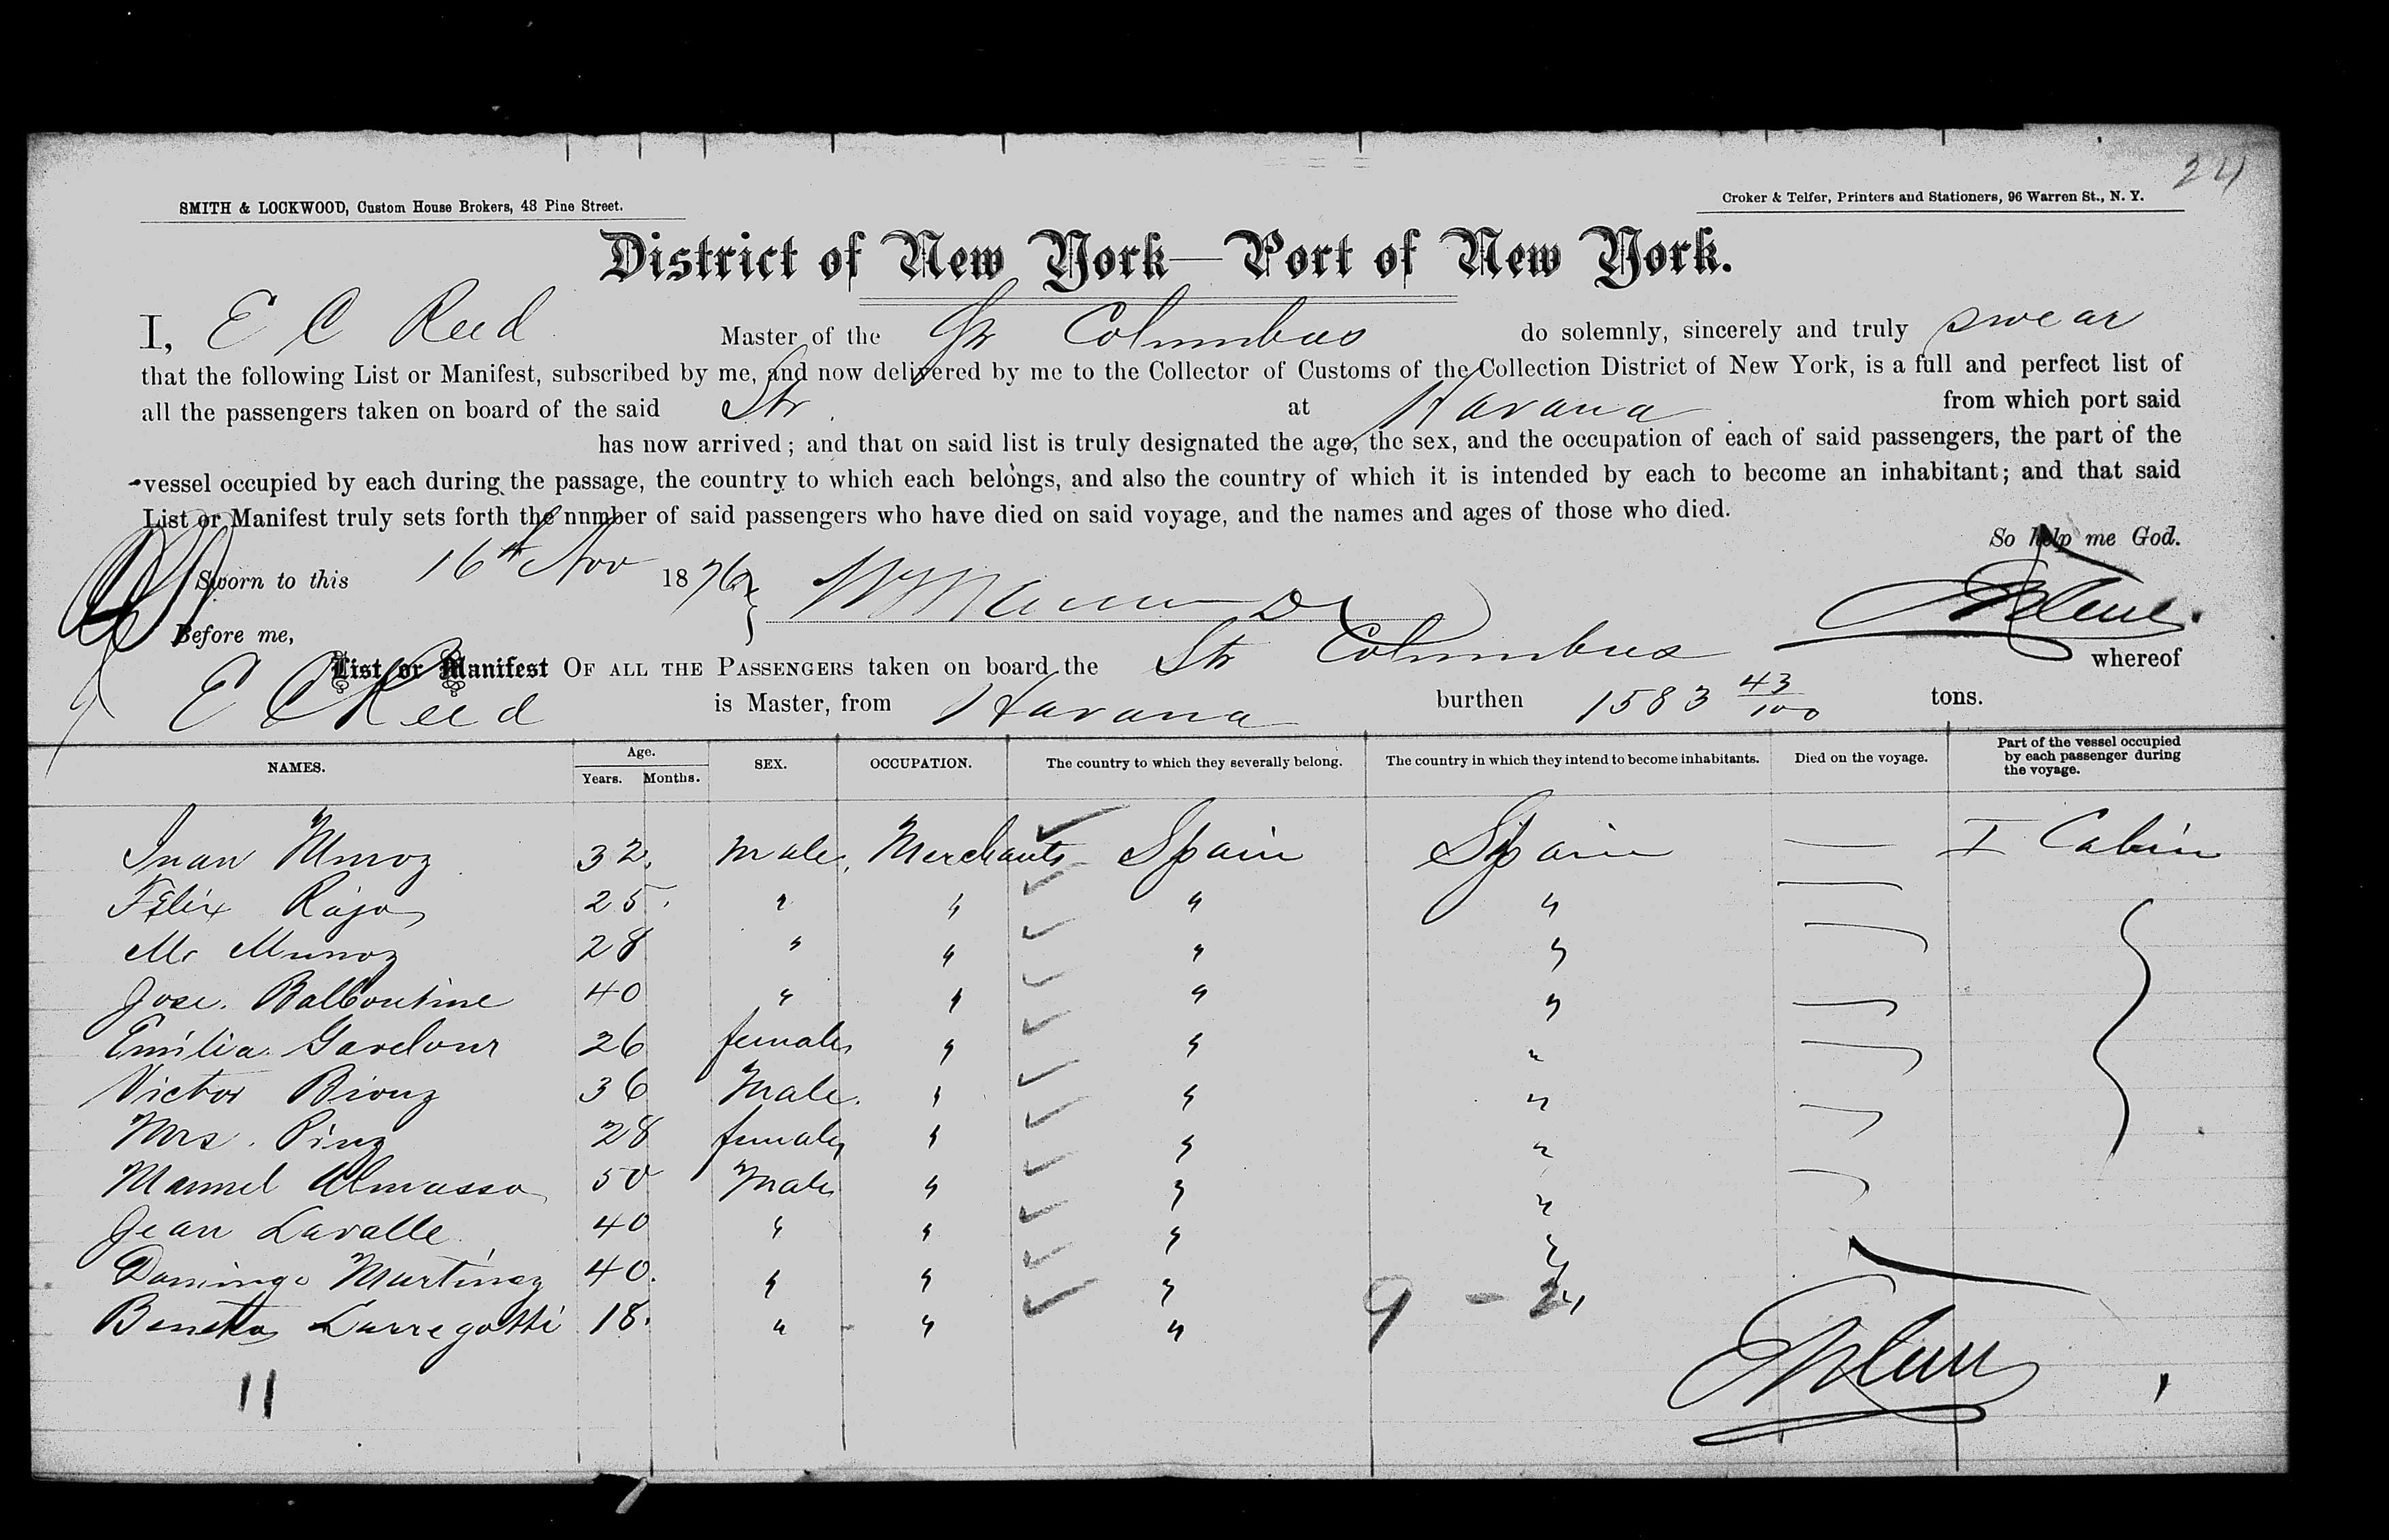 24
SMITH & LOCKWOOD, Custom House Brokers, 48 Pine Street.
Croker & Telfer, Printers and Stationers, 96 Warren St., N. Y.
District of New York—Port of New York.
I, E C Reed Master of the Str Columbus do solemnly, sincerely and truly swear
that the following List or Manifest, subscribed by me, and now delivered by me to the Collector of Customs of the Collection District of New York, is a full and perfect list of
all the passengers taken on board of the said Str. at Havana from which port said
has now arrived; and that on said list is truly designated the age, the sex, and the occupation of each of said passengers, the part of the
vessel occupied by each during the passage, the country to which each belongs, and also the country of which it is intended by each to become an inhabitant; and that said
List or Manifest truly sets forth the number of said passengers who have died on said voyage, and the names and ages of those who died.
So help me God.
Sworn to this 16th Nov 1876
Before me,
List or Manifest OF ALL THE PASSENGERS taken on board the Str Columbus whereof
E C Reed is Master, from Havana burthen 1583 43/100 tons.
NAMES. Age. Years. Months. SEX. OCCUPATION. The country to which they severally belong. The country in which they intend to become inhabitants. Died on the voyage. Part of the vessel occupied by each passenger during the voyage.
Juan Munoz 32 Male Merchants Spain Spain — I Cabin
Felix Rojo 25 " " " "
Mr Munoz 28 " " " "
Jose Balboutine 40 " " " "
Emilia 26 female " " "
Victor 36 Male " " "
Mrs. 28 female " " "
Manuel 50 Male " " "
Jean Lavalle 40 " " " "
Domingo Martinez 40 " " " "
Benito Larregotti 18 " " " "
9 - 24
11